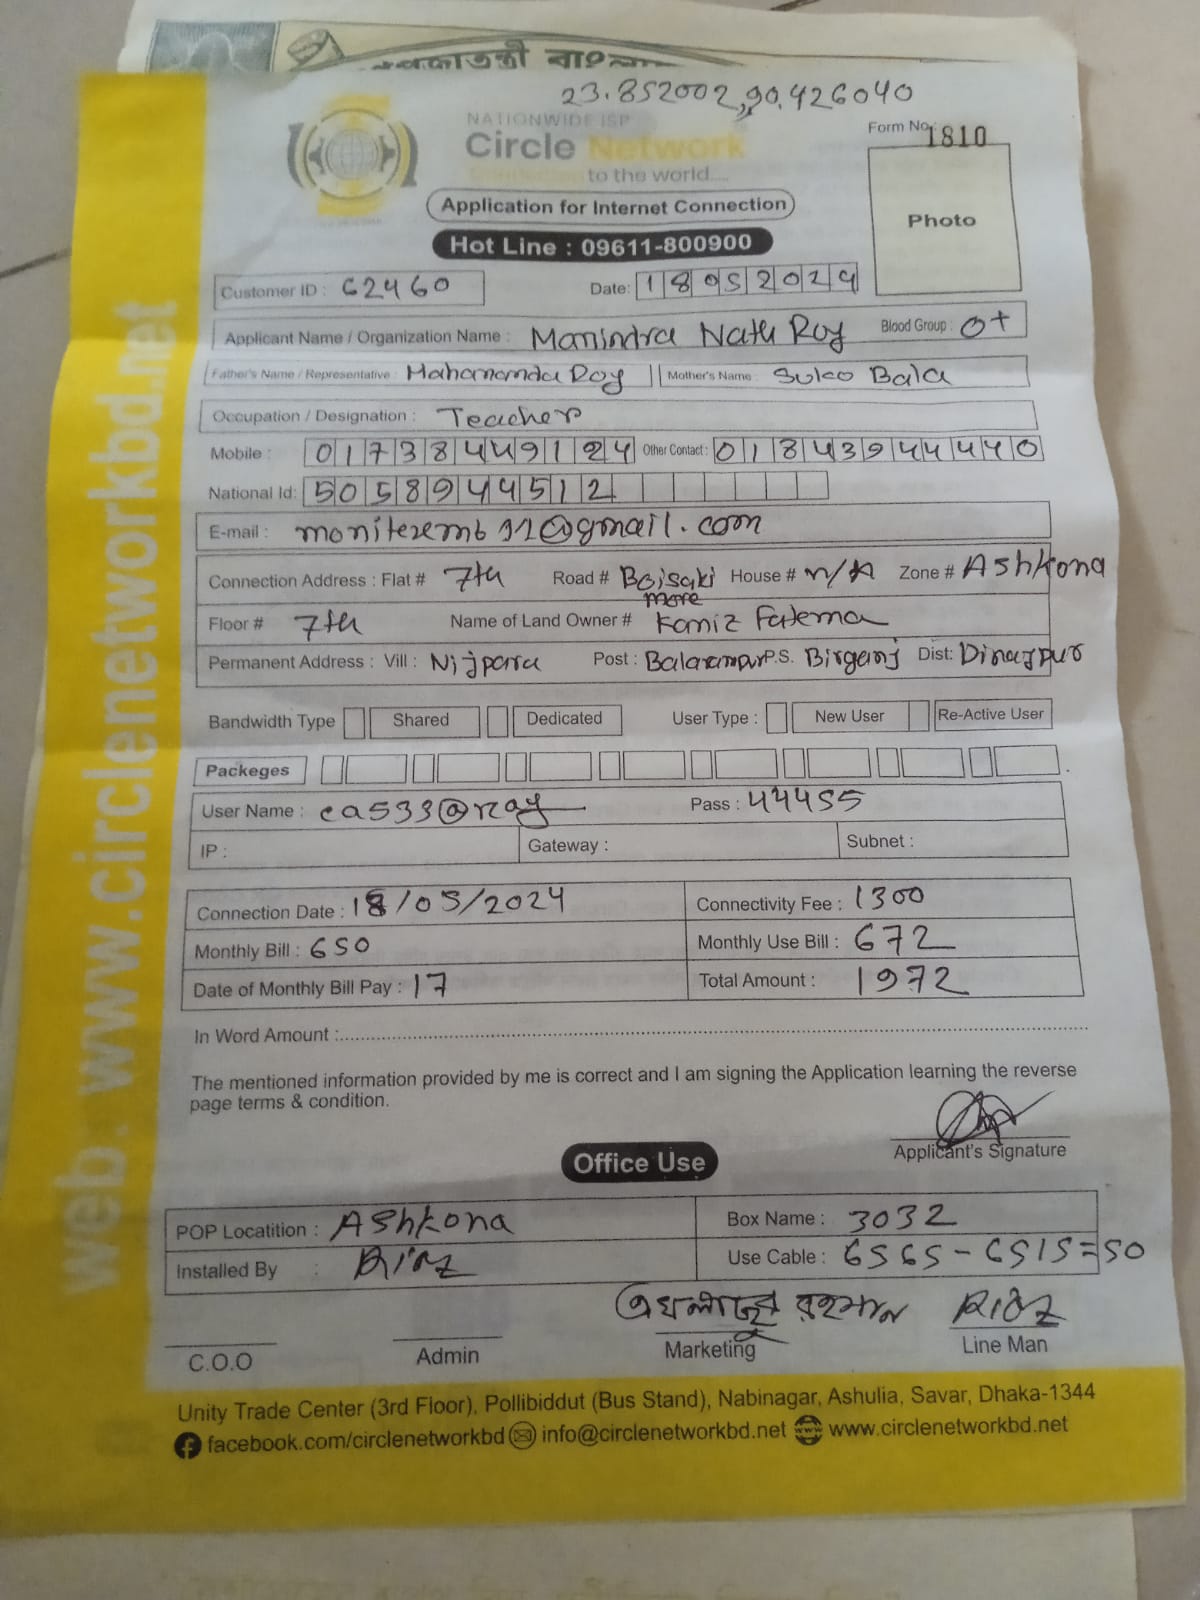 প্রজাতন্ত্রী বাংলা
23.852002,90.426040
NATIONWIDE ISP
Circle Network
to the world....
Form No. 1810
Photo
Application for Internet Connection
Hot Line : 09611-800900
Customer ID : 62460 Date: 18052024
Applicant Name / Organization Name : Manindra Nath Roy Blood Group : O+
Father's Name / Representative : Mahananda Roy Mother's Name : Suko Bala
Occupation / Designation : Teacher
Mobile : 01738449124 Other Contact : 01843944440
National Id: 5058944512
E-mail : @gmail.com
Connection Address : Flat # 7th Road # Boisaki more House # N/A Zone # Ashkona
Floor # 7th Name of Land Owner # Kaniz Fatema
Permanent Address : Vill : Nijpara Post : Balarampur P.S. Birganj Dist: Dinajpur
Bandwidth Type Shared Dedicated User Type : New User Re-Active User
Packeges
User Name : ca533@ray Pass : 44455
IP : Gateway : Subnet :
Connection Date : 18/05/2024 Connectivity Fee : 1300
Monthly Bill : 650 Monthly Use Bill : 672
Date of Monthly Bill Pay : 17 Total Amount : 1972
In Word Amount :
The mentioned information provided by me is correct and I am signing the Application learning the reverse
page terms & condition.
Applicant's Signature
Office Use
POP Locatition : Ashkona Box Name : 3032
Installed By : Riaz Use Cable : 6565-6515=50
রহমান Riaz
C.O.O Admin Marketing Line Man
Unity Trade Center (3rd Floor), Pollibiddut (Bus Stand), Nabinagar, Ashulia, Savar, Dhaka-1344
facebook.com/circlenetworkbd info@circlenetworkbd.net www.circlenetworkbd.net
web. www.circlenetworkbd.net